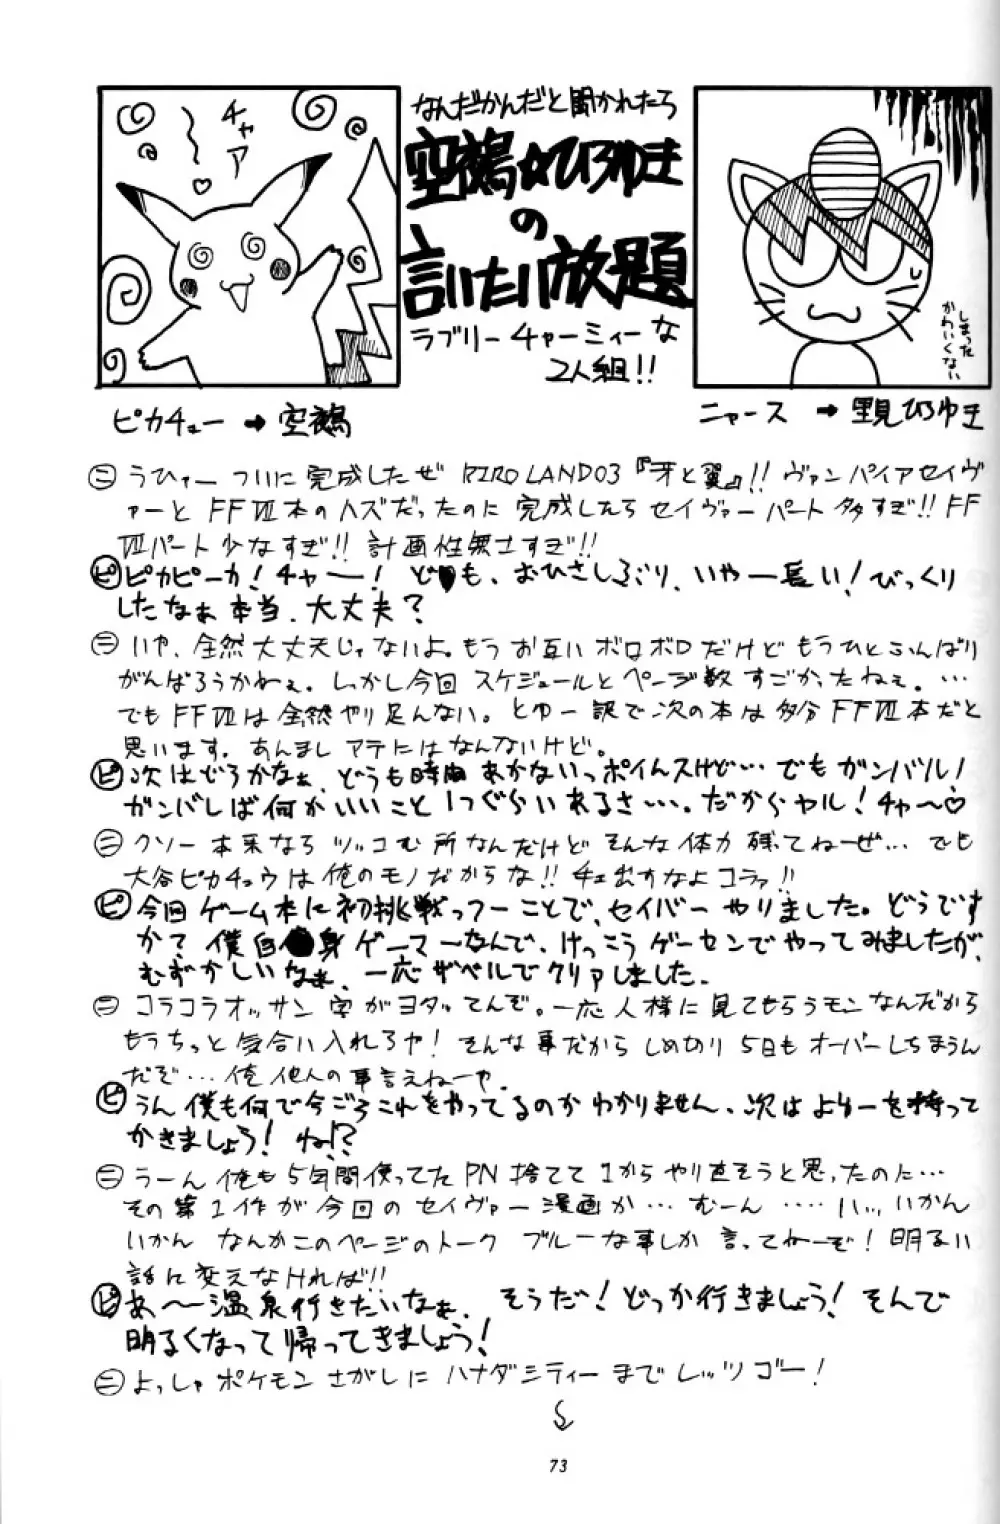 チャア
♡
なんだかんだと聞かれたら
空鵺☆ひろゆき
の
言いたい放題
ラブリーチャーミィーな
2人組!!
しまった
かわいくない
ピカチュー → 空鵺
ニャース → 里見ひろゆき
㊁ うひゃー ついに 完成したぜ RIROLAND03『牙と翼』!! ヴァンパイアセイヴ
ァーと FFⅦ本のハズだったのに 完成したら セイヴァーパート多すぎ!! FF
Ⅶパート少なすぎ!! 計画性無さすぎ!!
ピ ピカピーカ! チャー! ども、おひさしぶり、いやー長い! びっくり
したなぁ 本当、大丈夫?
㊁ いや、全然大丈夫じゃないよ。もう お互いボロボロだけど もうひとふんばり
がんばろうかねぇ。しっかし今回 スケジュールとページ数すごかったねぇ。…
でもFFⅦは全然やり足んない。とゆー訳で次の本は多分FFⅦ本だと
思います。あんまし アテにはなんないけど。
ピ 次はどうかなぁ、どうも時間あかないっポイんスけど… でもガンバルノ
ガンバレば何かいいこと 1つぐらいあるさ…。だからヤル! チャ〜♡
㊁ クソー 本来なら ツッコむ所なんだけど そんな体力 残ってねーぜ… でも
大谷ピカチュウは俺のモノだからな!! チェ出すなよコラァ!!
ピ 今回ゲーム本に初挑戦っつーことで、セイバーやりました。どうです
か? 僕自身ゲーマーなんで、けっこうゲーセンでやってみましたが、
むずかしいなぁ、一応ザベルでクリアしました。
㊁ コラコラオッサン 字がヨタってんぞ。一応人様に見てもらうモンなんだから
もうちっと気合い入れろや! そんな事だから しめ切り 5日もオーバーしちまうん
だぞ… 俺他人の事言えねーや。
ピ うん 僕も何で今ごろこれをやってるのか わかりません、次はよゆーを持って
かきましょう! ね!?
㊁ うーん 俺も5年間使ってたPN捨てて1からやり直そうと思ったのに…
その第1作が今回のセイヴァー漫画か… むーん …‥ ハッ、いかん
いかん なんかこのページのトーク ブルーな事しか言ってねーぞ! 明るい
話に変えなければ!!
ピ あ〜温泉行きたいなぁ、そうだ! どっか行きましょう! そんで
明るくなって帰ってきましょう!
㊁ よっしゃ ポケモンさがしに ハナダシティーまでレッツゴー!
73